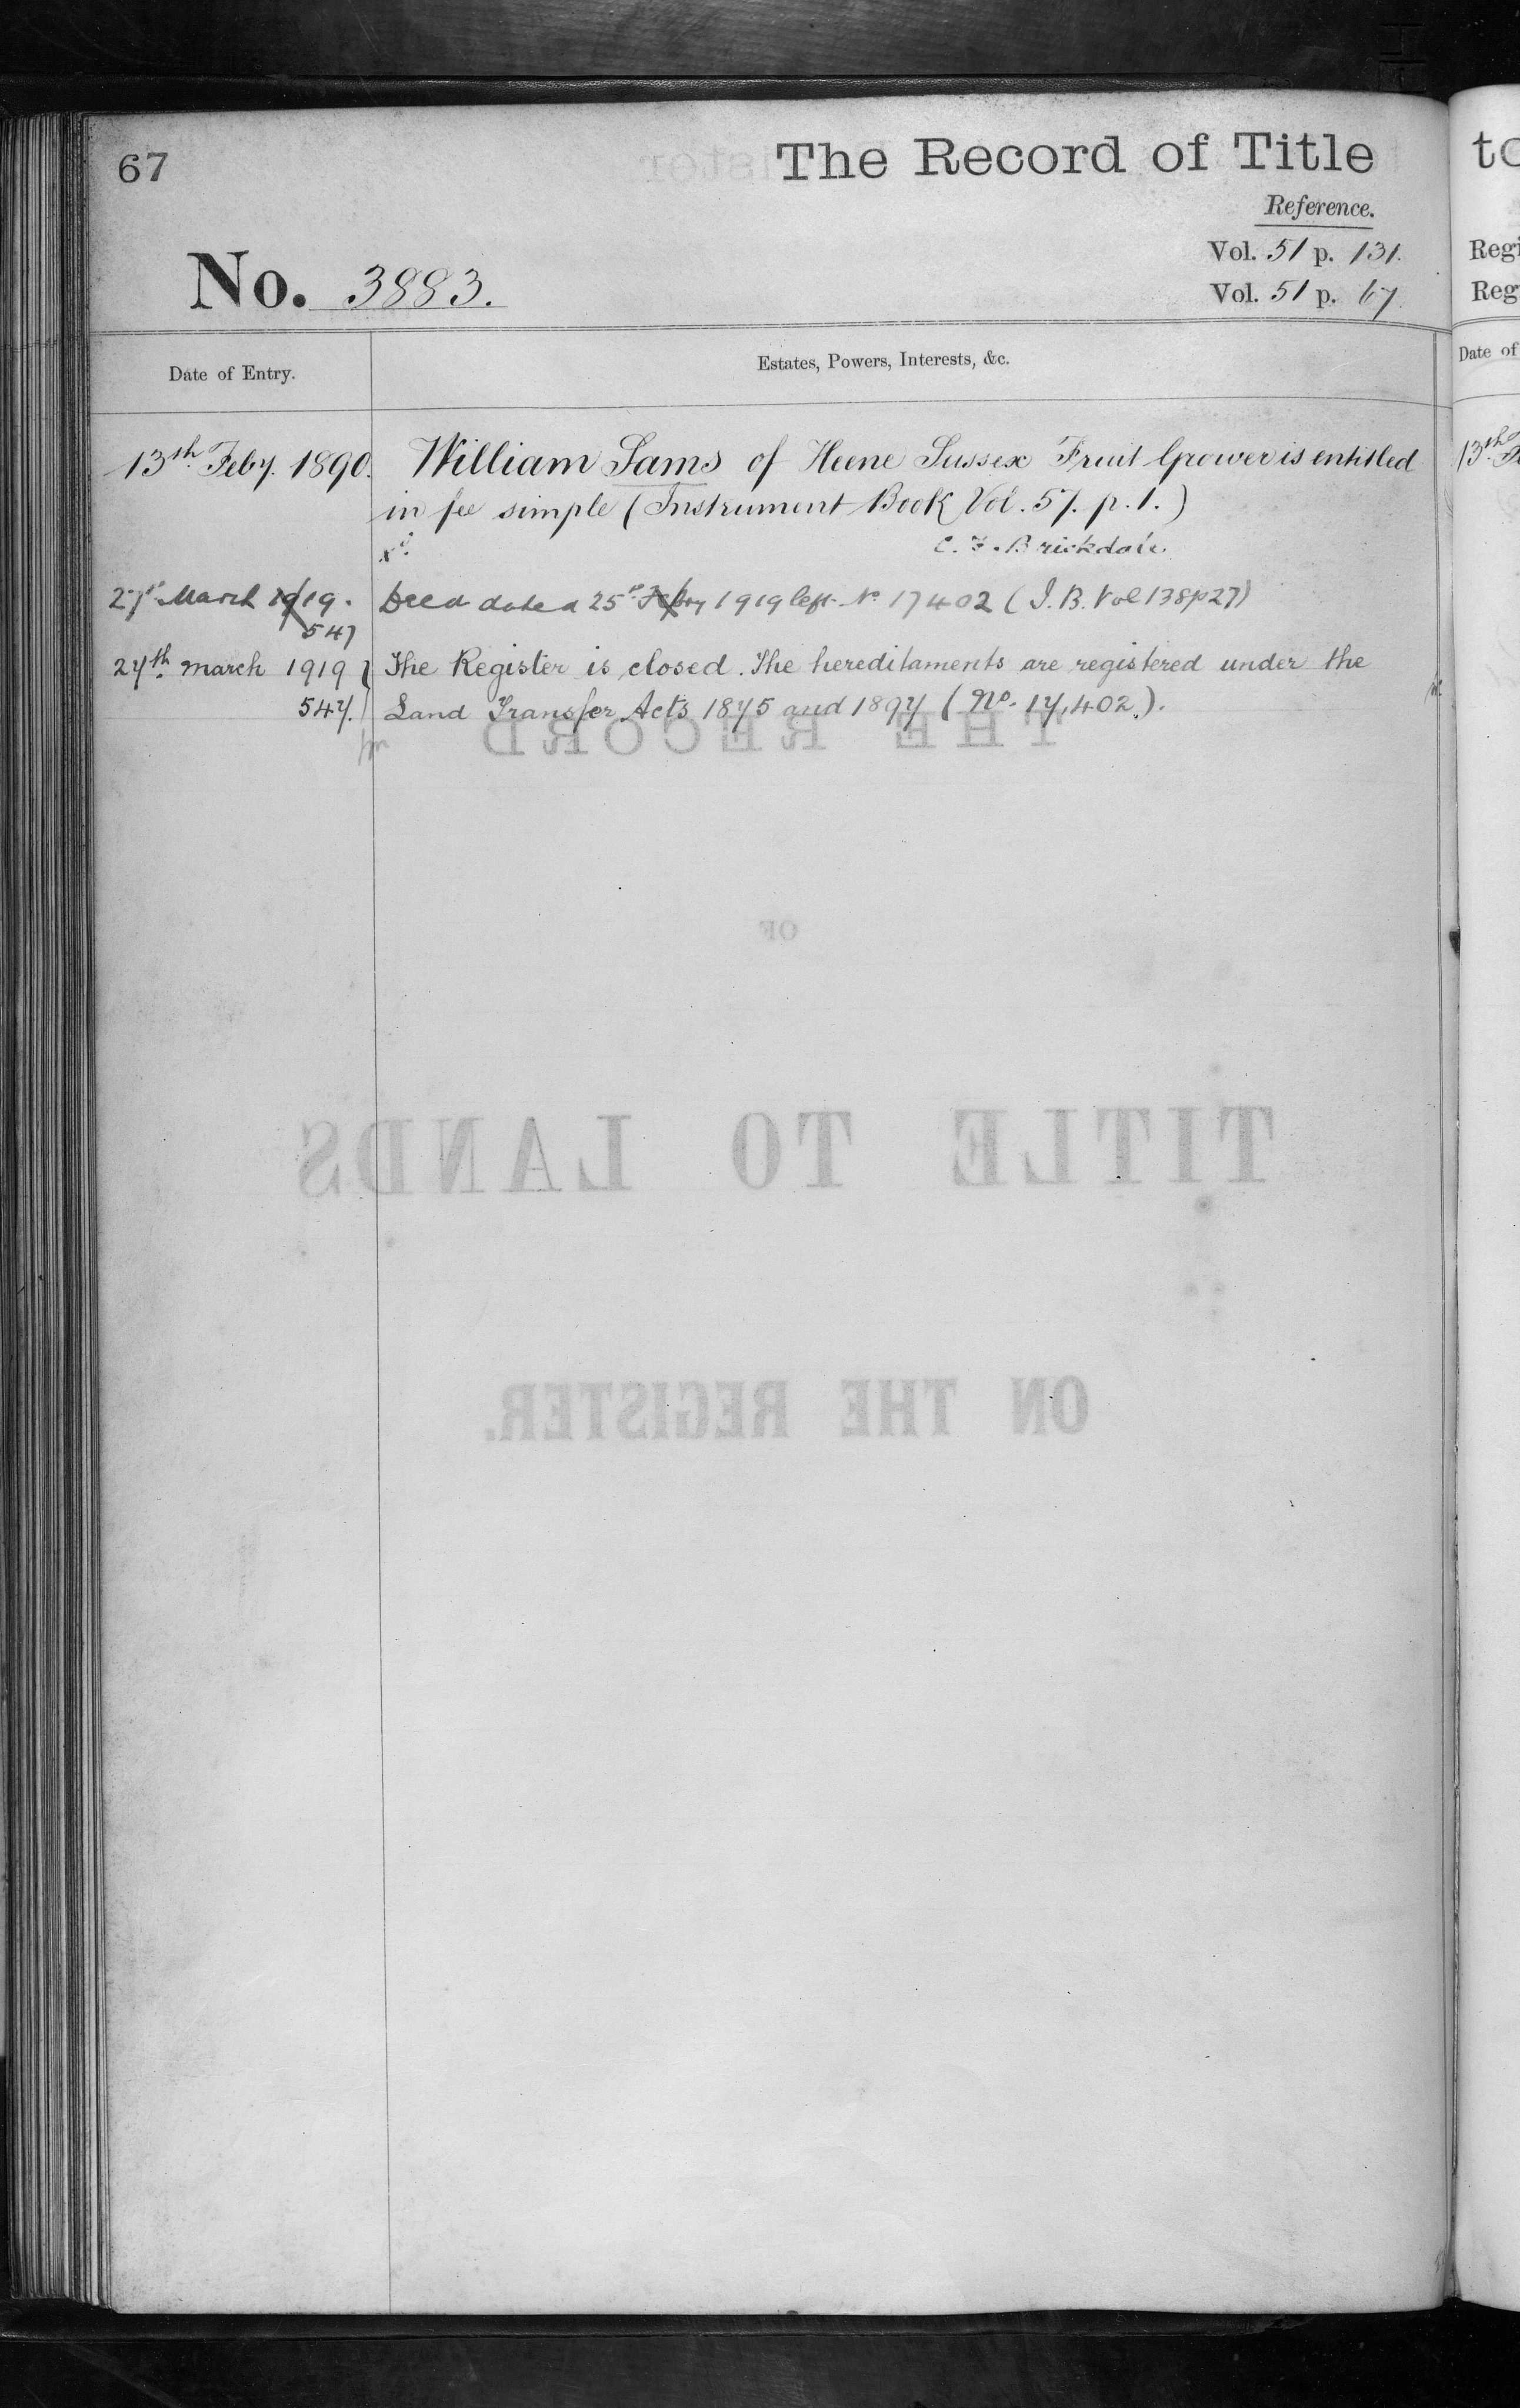 67
The Record of Title
Reference.
Vol. 51 p. 131.
No. 3883.
Vol. 51 p. 67.
Date of Entry.
Estates, Powers, Interests, &c.
13th Feby. 1890.
William Sams of Heene Sussex Fruit Grower is entitled
in fee simple (Instrument Book Vol. 57. p. 1.)
C. F. Brickdale
27th March 1919.
Deed dated 25th Febry 1919 left No 17402 (I. B. Vol 138 p 27)
547
27th March 1919
The Register is closed. The hereditaments are registered under the
547.
Land Transfer Acts 1875 and 1897 (No. 17,402.).
THE RECORD
OF
TITLE TO LANDS
ON THE REGISTER.
to
Regi
Reg
Date of
13th